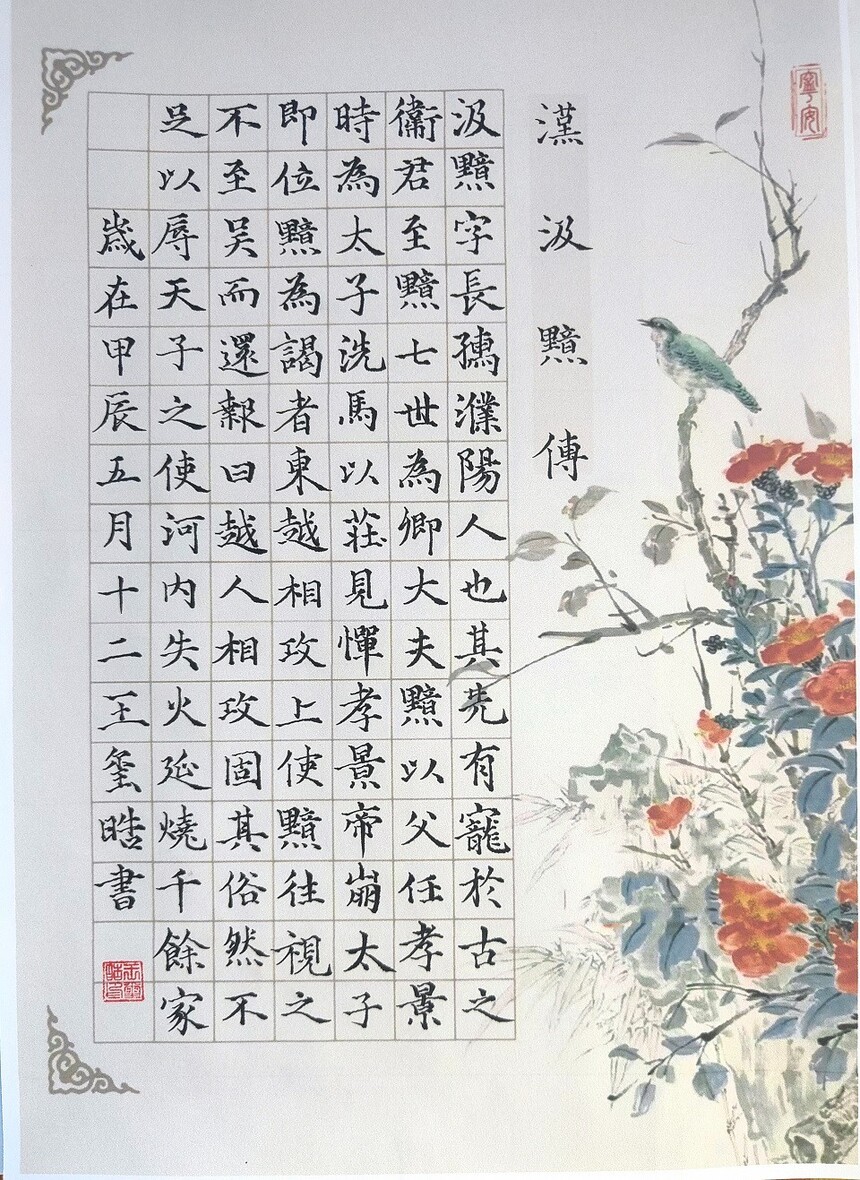 寧安
漢汲黯傳
汲黯字長孺濮陽人也其先有寵於古之
衛君至黯七世為卿大夫黯以父任孝景
時為太子洗馬以莊見憚孝景帝崩太子
即位黯為謁者東越相攻上使黯往視之
不至吳而還報曰越人相攻固其俗然不
足以辱天子之使河內失火延燒千餘家
歲在甲辰五月十二王玺晧書